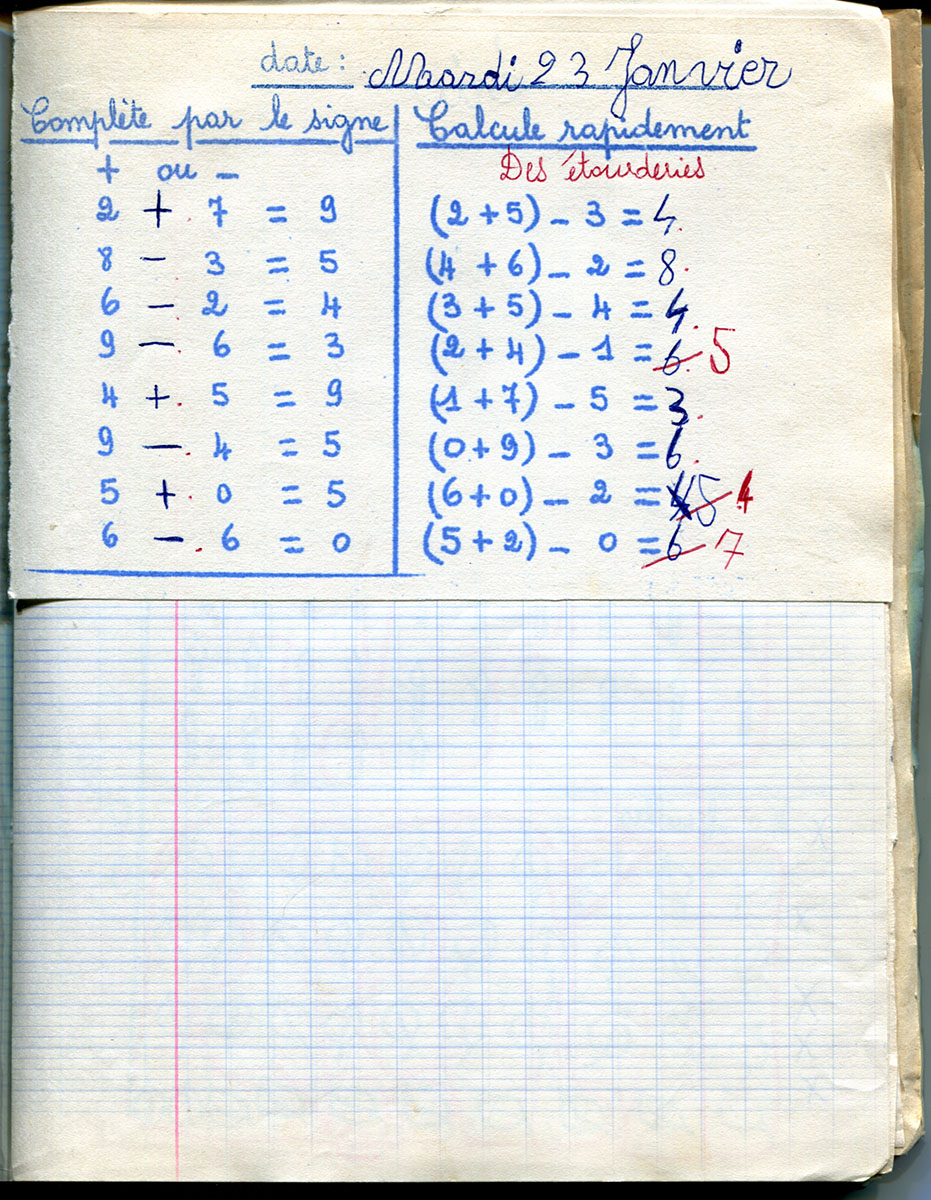 date : Mardi 23 Janvier
Complète par le signe
+ ou -
2 + 7 = 9
8 - 3 = 5
6 - 2 = 4
9 - 6 = 3
4 + 5 = 9
9 - 4 = 5
5 + 0 = 5
6 - 6 = 0
Calcule rapidement
Des étourderies
(2 + 5) - 3 = 4
(4 + 6) - 2 = 8
(3 + 5) - 4 = 4
(2 + 4) - 1 = 6 5
(1 + 7) - 5 = 3
(0 + 9) - 3 = 6
(6 + 0) - 2 = 4 5 4
(5 + 2) - 0 = 6 7